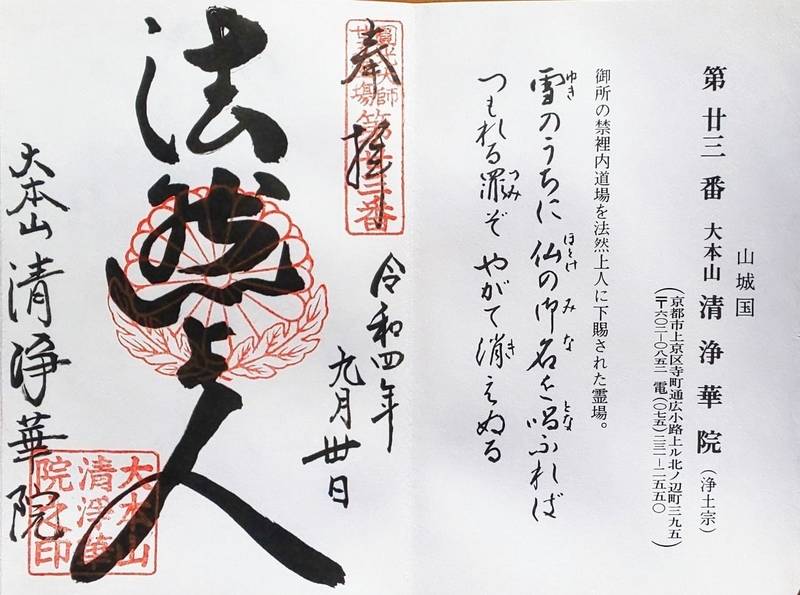 山城国
第廿三番 大本山 清浄華院（浄土宗）
（京都市上京区寺町通広小路上ル北ノ辺町三九五
〒六〇二―〇八五二 電（〇七五）二三一―二五五〇）
御所の禁裡内道場を法然上人に下賜された霊場。
雪のうちに 仏の御名を 唱ふれば
ゆき ほとけ みな とな
つもれる罪ぞ やがて消えぬる
つみ き
奉拝
圓光大師
廿五霊場第廿三番
令和四年
九月卅日
法然上人
大本山 清浄華院
大本山
清浄華
院之印